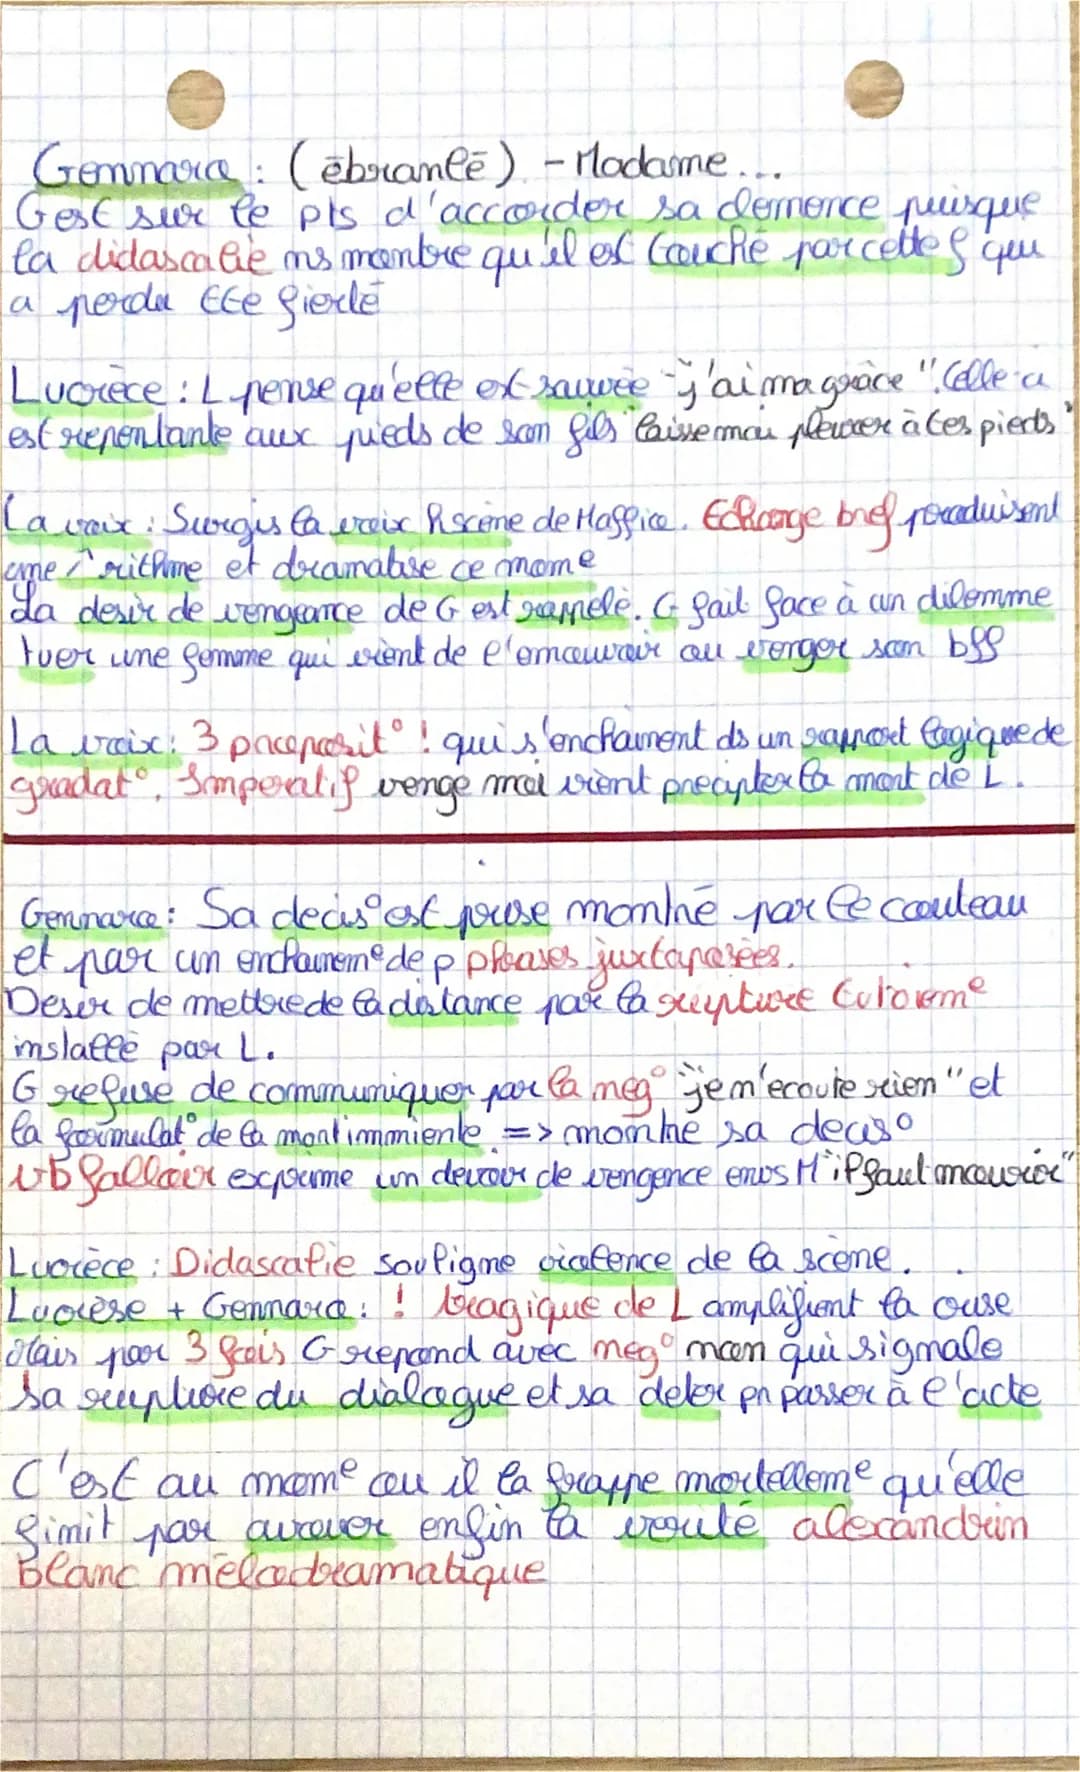 Gennaro : (ébranlé) - Madame...
G est sur le pts d'accorder sa clemence puisque
la didascalie ns montre qu'il est touché par cette f qui
a perdu tte fierté
Lucrèce : L pense qu'elle est sauvée "j'ai ma grâce". Celle-ci
est repentante aux pieds de son fils "laisse moi pleurer à tes pieds"
La voix : Surgis la voix h scène de Maffio. Echange bref produisent
une rithme et dramatise ce mome
La desir de vengeance de G est rappelé. G fait face à un dilemme
tuer une femme qui vient de l'emouvoir ou venger son bff
La voix : 3 préposit° ! qui s'enchainent ds un rapport logique de
gradat°. Imperatif venge moi vient precipter la mort de L.
Gennaro : Sa decis° est prise montré par le couteau
et par un enchaineme de p phrases juxtaposées.
Desir de mettre de la distance par la rupture tutoieme
installé par L.
G refuse de communiquer par la neg° "je n'ecoute rien" et
la formulat° de la mort imminente => montre sa decis°
vb falloir exprime un devoir de vengence envs M "il faut mourir"
Lucrèce : Didascalie souligne violence de la scène.
Lucrèse + Gennaro : ! tragique de L amplifient la crise
Mais par 3 fois G repond avec neg° non qui signale
sa rupture du dialogue et sa deter pr passer à l'acte
C'est au mome ou il la frappe mortelleme qu'elle
finit par avouer enfin la verité alexandrin
blanc mélodramatique